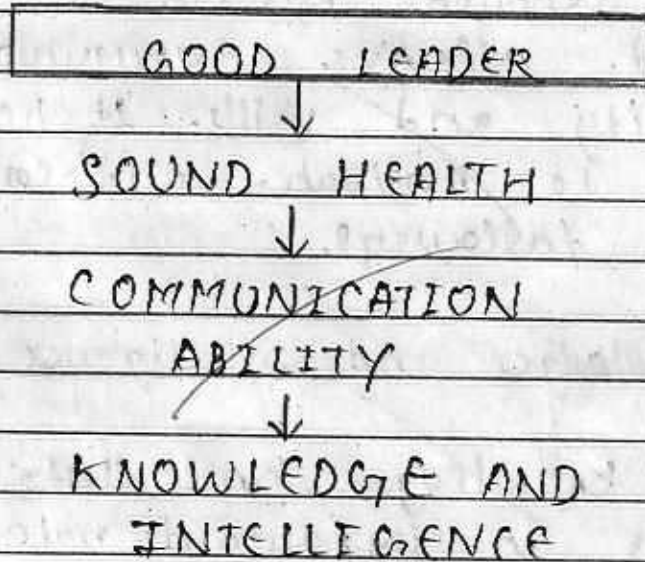 GOOD LEADER
↓
SOUND HEALTH
↓
COMMUNICATION
ABILITY
↓
KNOWLEDGE AND
INTELLIGENCE